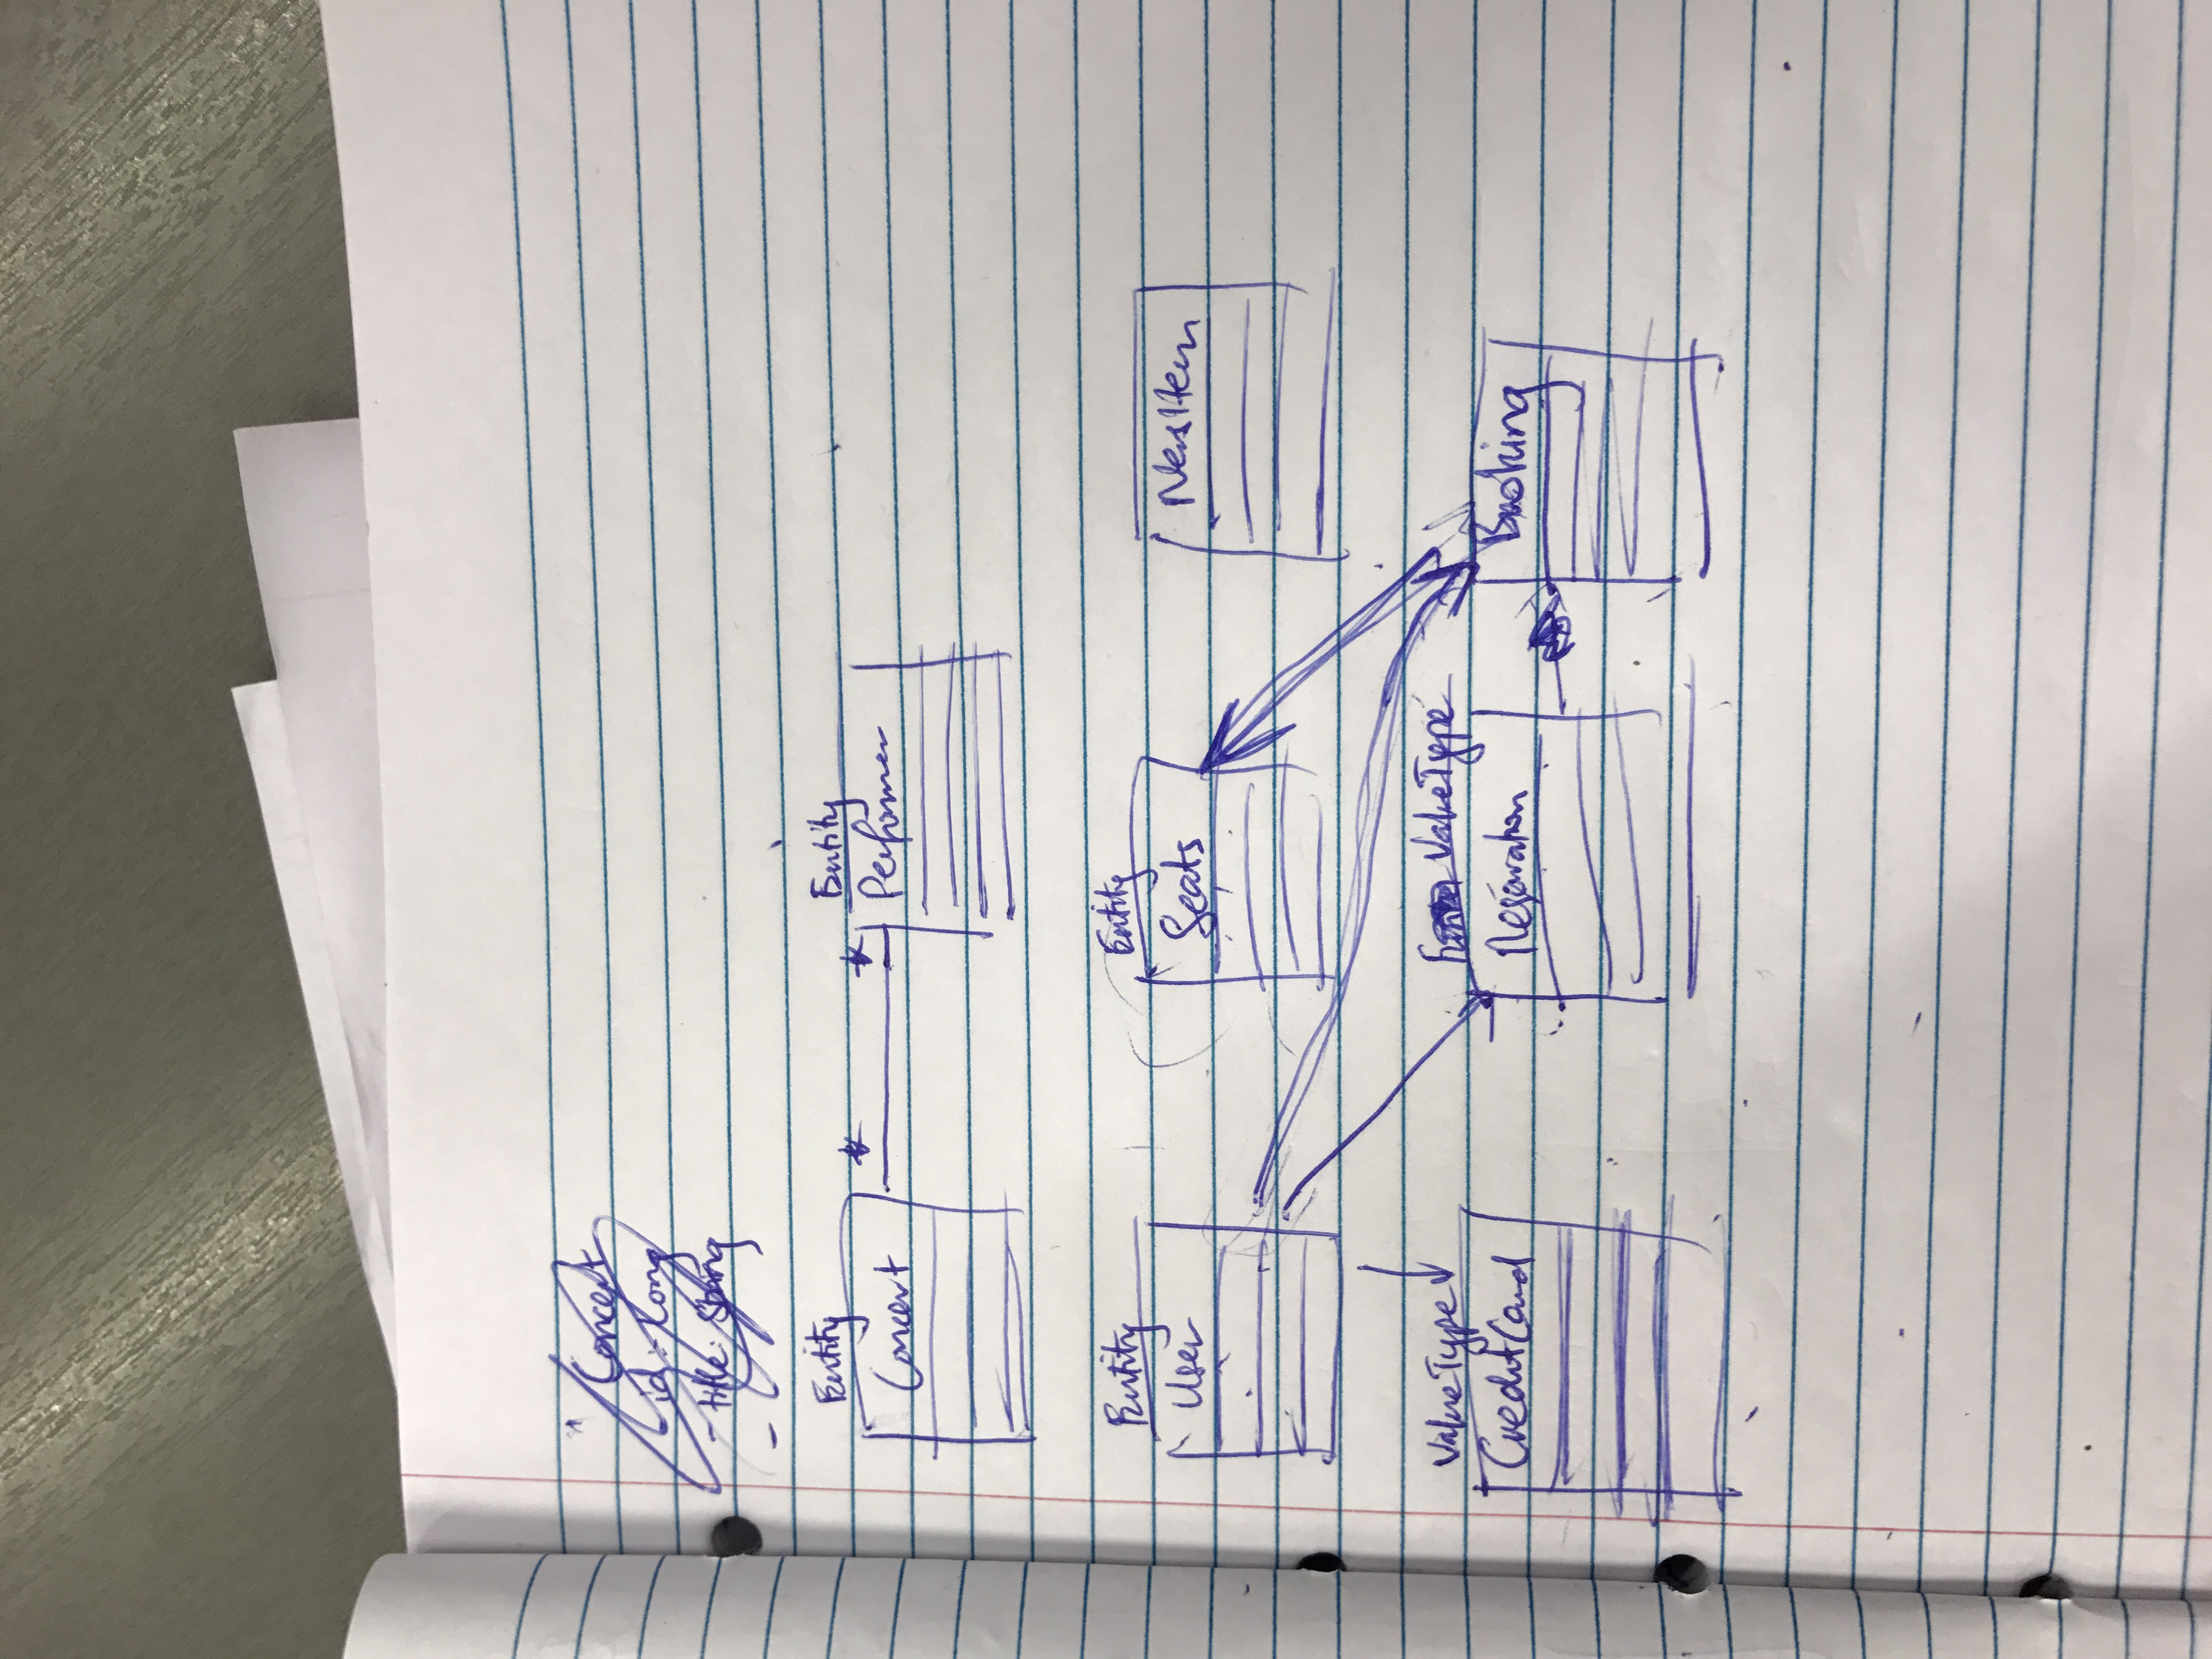 Concert
id: Long
- title: String
-
Entity
Concert
*
*
Entity
Performer
Entity
User
Entity
Seats
NewsItem
ValueType
CreditCard
ValueType
Reservation
Booking